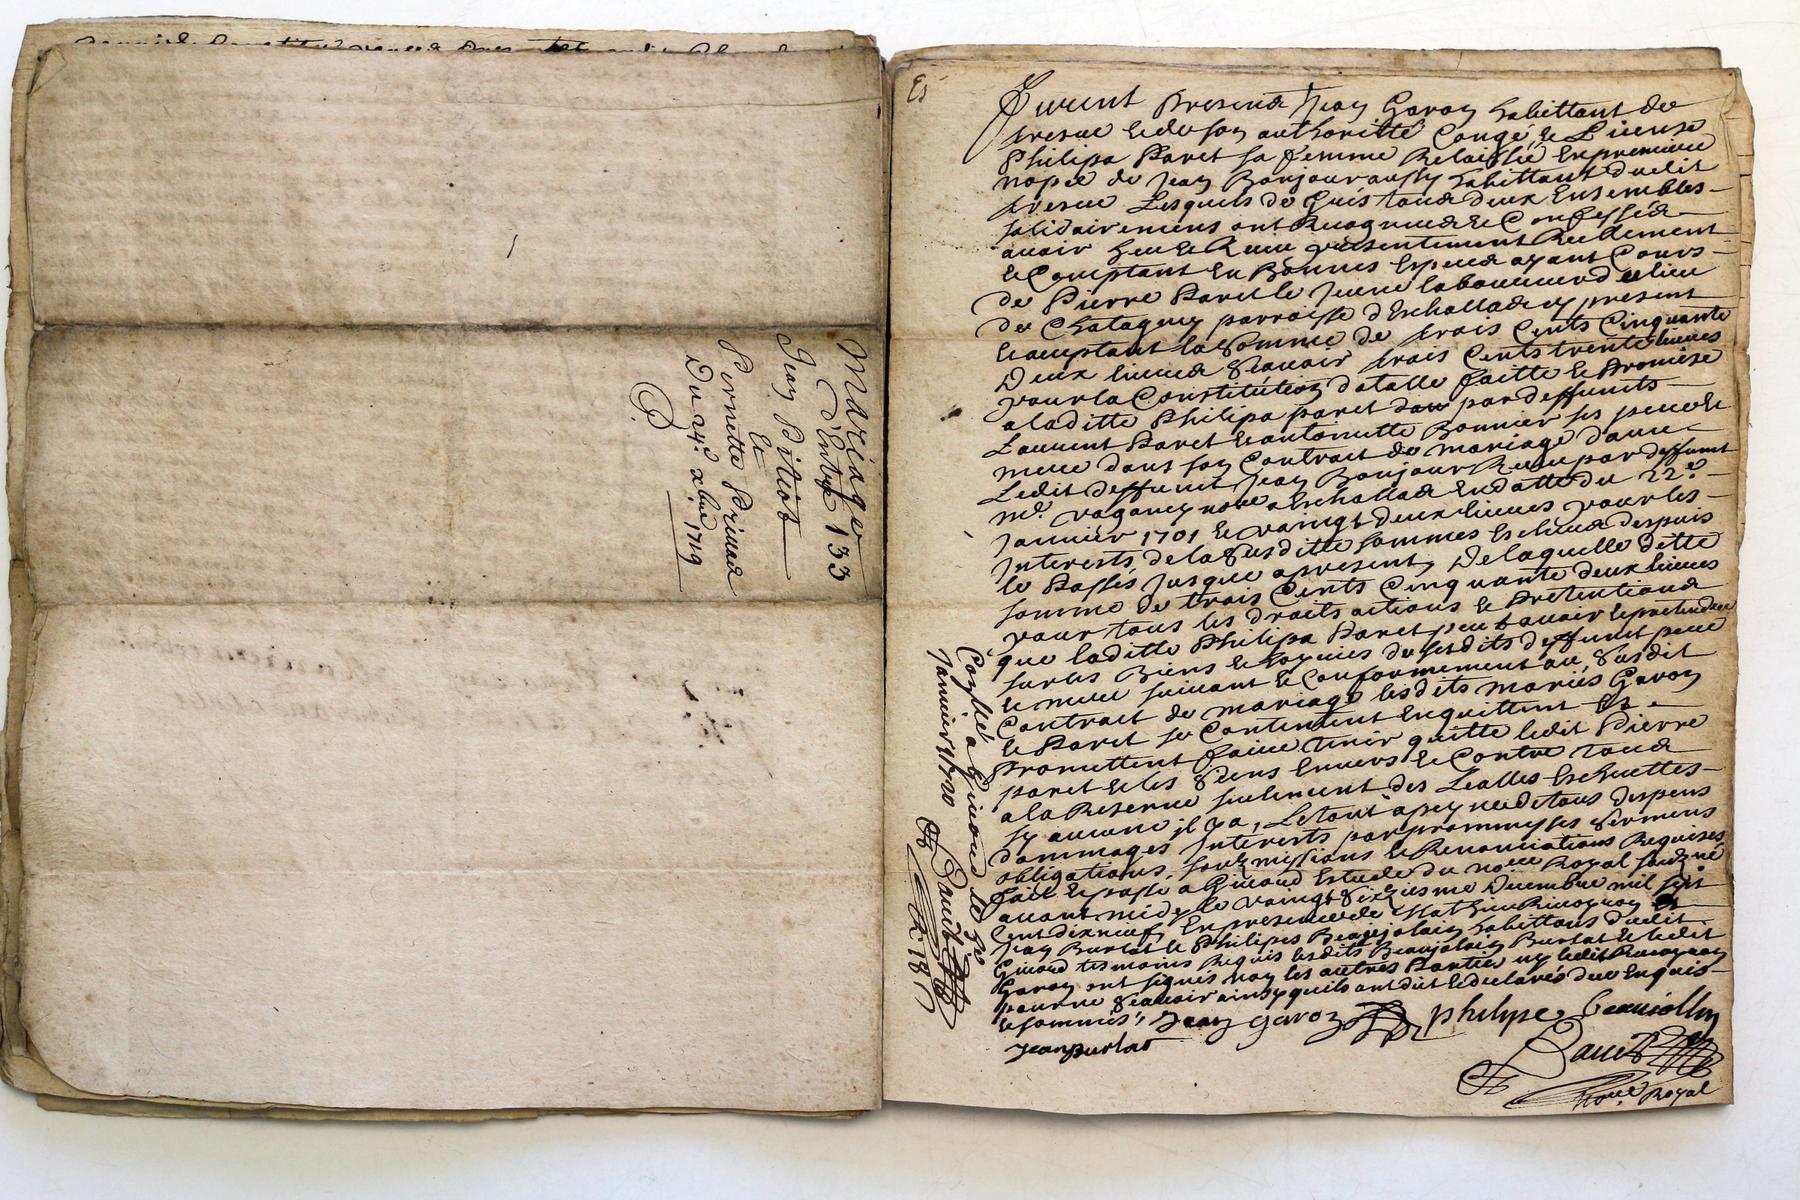 Mariage 133
d'Entre
Jean Pitiot
Et
Pernette Brillad
Du 24e xbre 1719
Es
Furent Presents Jean Garon habittant de
fresne & de son authoritté Congé & License
Philipa Paret sa femme Relaissée En premiere
nopce de Jean Bonjour aussy habittant dudit
fresne Lesquels de Gré tous deux Ensembles
solidairemens ont Recogneus & Confessés
avoir heu & Receu presentement Reellement
& Comptant En Bonnes Especes ayant Cours
de Pierre Paret le Jeune laboureur du lieu
de Chatagny parroisse d'Eschallas cy present
& acceptant la Somme de trois Cents Cinquante
Deux livres Scavoir trois Cents trente livres
pour la Constitution datalle faitte & Promise
a laditte Philipa paret par deffunts
Laurent Paret & antoinette Bonnier ses pere &
mere dans son Contrait de mariage d'avec
Ledit deffunt Jean Bonjour Receu par deffunt
me nore a Eschallas En datte du 22e
Janvier 1701 & vaingt deux livres pour les
Interests de la Susditte somme Escheus despuis
le Passés Jusque apresent, De laquelle ditte
somme de trois Cents Cinquante deux livres
pour tous les droits actions & Prétentions
que laditte Philipa Paret peut avoir & pretendre
sur les Biens & hoyries desdits deffunt pere
& mere suivant & Conformement au Susdit
Contrait de mariage lesdits mariés Garon
& Paret se Contentent En quittent &
Promettent faire tenir quitte ledit Pierre
paret & les Siens Envers & Contre tous
a la Reserve seulement des Lealles Escheuttes
sy aucune il y a, Le tout a peyne de tous despens
dommages Interests par prommesses Sermens
obligations, soubmissions & Renonciations Requises
fait & passé a Givord Estude du nore Royal soubzné
avant midy le vaingt Sixiesme Decembre mil sept
Cent dix neuf En presence de Mathieu
Jean Burlat & Philipes Beaujolain habittans dudit
Givord tesmoins Requis lesdits Beaujolain Burlat & ledit
Garon ont signés non les autres Parties ny ledit
pour ne Scavoir ainsy qu'ils ont dit & declarés de ce Enquis
& sommés, Jean garon philipe beaujollin
Jean burlat
nore Royal
Conllé a Givord le 3e
Janvier 1720
R 18 s